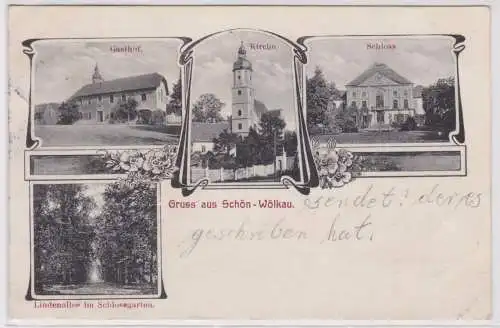 Gasthof.
Kirche
Schloss
Gruss aus Schön-Wölkau.
sendet? der es
geschrieben hat.
Lindenallee im Schlossgarten.